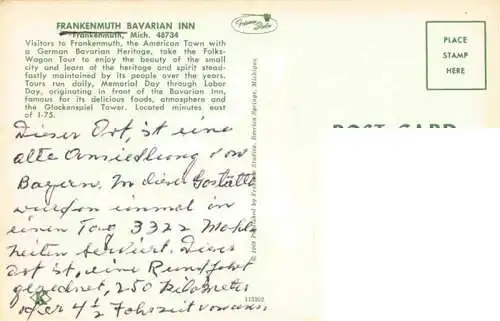 FRANKENMUTH BAVARIAN INN
Frankenmuth, Mich. 48734
Visitors to Frankenmuth, the American Town with
a German Bavarian Heritage, take the Folks-
Wagon Tour to enjoy the beauty of the small
city and learn of the heritage and spirit stead-
fastly maintained by its people over the years.
Tours run daily, Memorial Day through Labor
Day, originating in front of the Bavarian Inn,
famous for its delicious foods, atmosphere and
the Glockenspiel Tower. Located minutes east
of I-75.
PLACE
STAMP
HERE
POST CARD
Dieser Ort, ist eine
alte Ansiedlung von
Bayern. In dieser Gaststätte
wurden einmal in
einen Tag 3322 Mahl
zeiten serviert. Dieser
Ort ist, eine Rundfahrt
gerechnet, 250 Kilometer
oder 4 1/2 von
Published by Studios, Berrien Springs, Michigan
113202